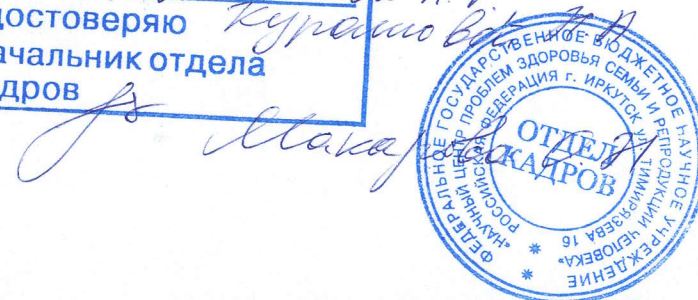 достоверяю
Курашовой Н.А
ачальник отдела
дров
Макарова
ФЕДЕРАЛЬНОЕ ГОСУДАРСТВЕННОЕ БЮДЖЕТНОЕ НАУЧНОЕ УЧРЕЖДЕНИЕ
"НАУЧНЫЙ ЦЕНТР ПРОБЛЕМ ЗДОРОВЬЯ СЕМЬИ И РЕПРОДУКЦИИ ЧЕЛОВЕКА"
РОССИЙСКАЯ ФЕДЕРАЦИЯ г. ИРКУТСК УЛ. ТИМИРЯЗЕВА 16
ОТДЕЛ
КАДРОВ